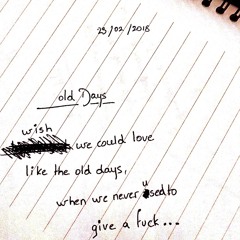 25/02/2018
old Days
wish
we could love
like the old days,
when we never used to
give a fuck...